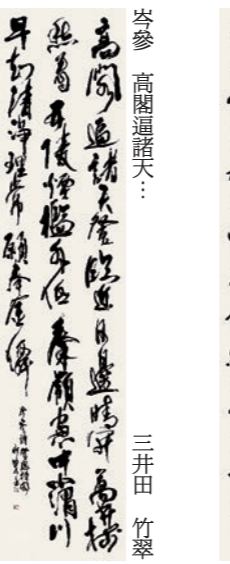 岑參 高閣逼諸天… 三井田 竹翠
高閣逼諸天登臨近日邊晴開萬井樹
愁看五陵煙檻外低秦嶺窓中小渭川
早知清浄理常願奉金僊